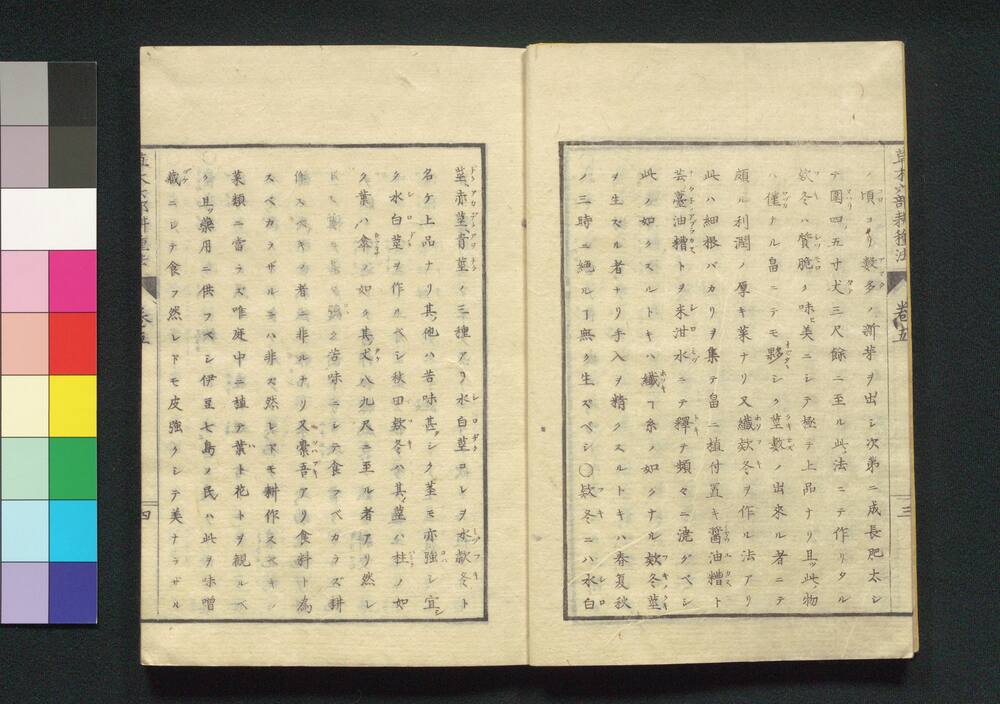 草木六部耕種法
卷五
三
ノ頃ヨリ數多ノ新芽ヲ出シ次第ニ成長肥太シ
テ圍四五寸丈三尺餘ニ至ル此法ニテ作リタル
欵冬ハ質脆ク味美ニシテ極テ上品ナリ且此物
ハ僅ナル畠ニテモ夥シク莖數ノ出來ル者ニテ
頗ル利潤ノ厚キ業ナリ又纎欵冬ヲ作ル法アリ
此ハ細根バカリヲ集テ畠ニ植付置キ醤油糟ト
芸薹油糟トヲ末泔水ニテ釋テ頻々ニ澆グベシ
此ノ如クスルトキハ纎ヿ糸ノ如クナル欵冬莖
ヲ生ズル者ナリ手入ヲ精クスルトキハ春夏秋
ノ三時ニ絶ルヿ無ク生ズベシ〇欵冬ニハ水白
莖赤莖青莖ノ三種アリ水白莖コレヲ水欵冬ト
名ケ上品ナリ其他ハ苦味甚シク莖モ亦強シ宜
ク水白莖ヲ作ルベシ秋田欵冬ハ其莖ハ柱ノ如
ク葉ハ傘ノ如ク其丈八九尺ニ至ル者アリ然レ
強ク苦味ニシテ食フベカラズ耕
作スベキノ者ニ非ルナリ又橐吾アリ食料ト爲
スベカラザルニハ非ズ然レドモ耕作スベキノ
菜類ニ當ラズ唯庭中ニ植テ葉ト花トヲ觀ルベ
ク且藥用ニ供フベシ伊豆七島ノ民ハ此ヲ味噌
蔵ニシテ食フ然レドモ皮強クシテ美ナラザル
四